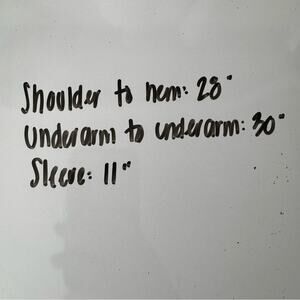 Shoulder to hem: 28"
Underarm to underarm: 30"
Sleeve: 11"